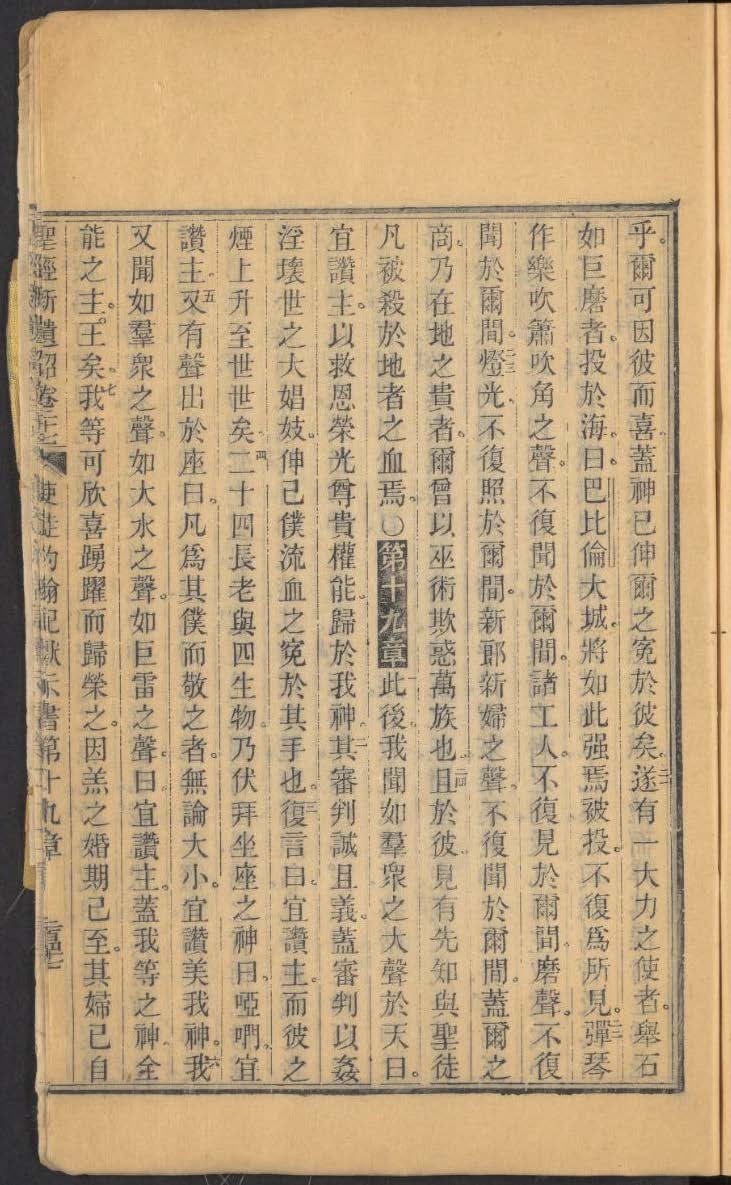 乎。爾可因彼而喜蓋神已伸爾之寃於彼矣。二一遂有一大力之使者。舉石
如巨磨者。投於海。曰。巴比倫大城。將如此强焉被投。不復爲所見。二二彈琴
作樂吹簫吹角之聲。不復聞於爾間。諸工人。不復見於爾間。磨聲。不復
聞於爾間。二三燈光。不復照於爾間。新郎新婦之聲。不復聞於爾間。蓋爾之
商。乃在地之貴者。爾曾以巫術欺惑萬族也。二四且於彼。見有先知與聖徒
凡被殺於地者之血焉。〇第十九章一此後。我聞如羣衆之大聲於天曰。
宜讚主。以救恩榮光尊貴權能。歸於我神。二其審判誠且義。蓋審判以姦
淫壞世之大娼妓。伸己僕流血之寃於其手也。三復言曰。宜讚主。而彼之
煙上升至世世矣。四二十四長老與四生物。乃伏拜坐座之神曰。啞們。宜
讚主。五又有聲出於座曰。凡爲其僕而敬之者。無論大小。宜讚美我神。六我
又聞如羣衆之聲。如大水之聲。如巨雷之聲。曰。宜讚主。蓋我等之神。全
能之主。王矣。七我等可欣喜踴躍而歸榮之。因羔之婚期已至。其婦已自
聖經新遺詔卷 使徒約翰記默示書第十九章